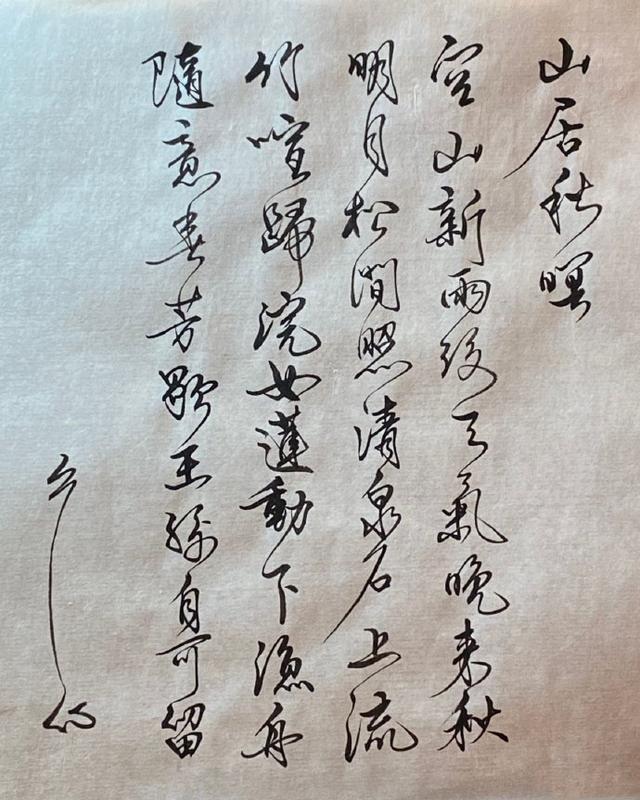 山居秋暝
空山新雨後天氣晚来秋
明月松間照清泉石上流
竹喧歸浣女蓮動下漁舟
隨意春芳歇王孫自可留